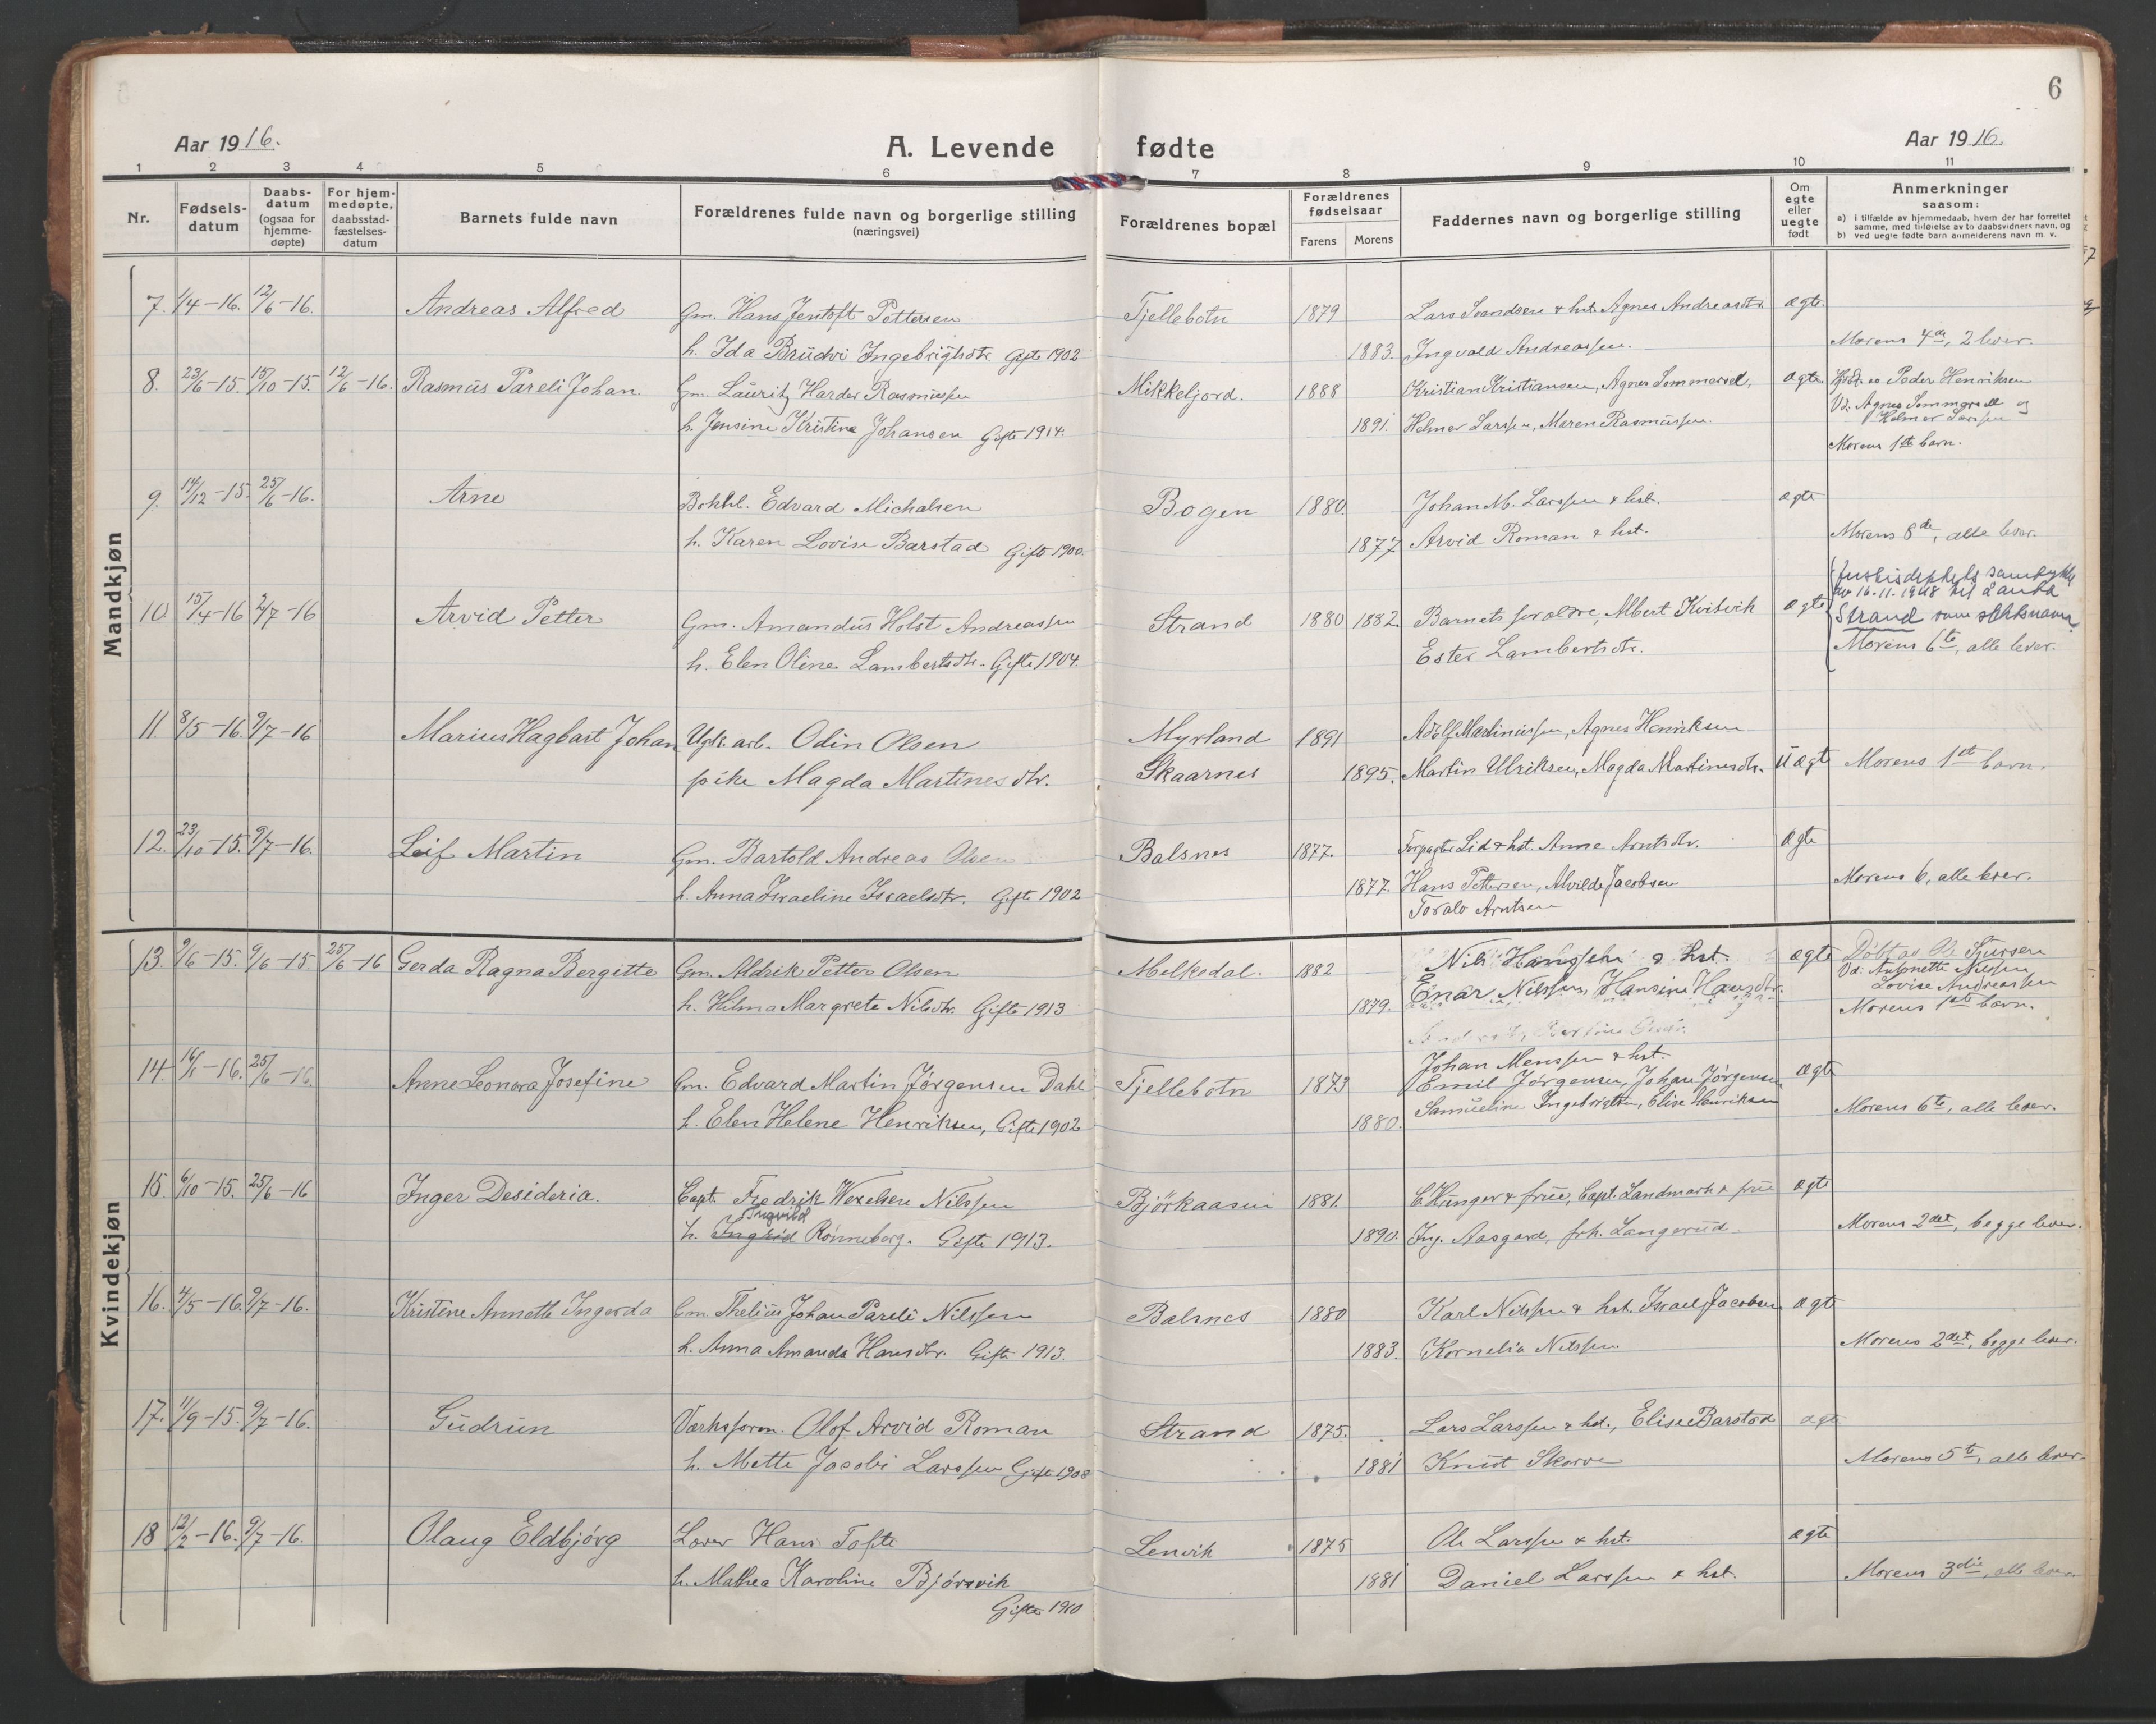 6
Aar 1916.
A. Levende fødte
Aar 1916.
1 2 3 4 5 6 7 8 9 10 11
Nr.
Fødsels-
datum
Daabs-
datum
(ogsaa for
hjemme-
døpte)
For hjem-
medøpte,
daabsstad-
fæstelses-
datum
Barnets fulde navn
Forældrenes fulde navn og borgerlige stilling
(næringsvei)
Forældrenes bopæl
Forældrenes
fødselsaar
Farens Morens
Faddernes navn og borgerlige stilling
Om
egte
eller
uegte
født
Anmerkninger
saasom:
a) i tilfælde av hjemmedaab, hvem der har forrettet
samme, med tilføielse av to daabsvidners navn, og
b) ved uegte fødte barn anmelderens navn m. v.
Mandkjøn
7. 1/4-16. 12/6-16. Andreas Alfred Gm. Hans Jentoft Pettersen Tjellebotn 1879 Lars Svendsen & hst. Agnes Andreasdtr. ægte.
h. Ida Brudvi Ingebrigtsdtr. Gifte 1902 1883. Ingvald Andreassen. Morens 4de, 2 lever.
8. 23/6-15. 15/10-15. 12/6-16. Rasmus Pareli Johan. Gm. Lauritz Harder Rasmussen Mikkeljord. 1888 Kristian Kristiansen, Agnes Sommersel, ægte Peder Henriksen
Vd. Agnes Sommersell og
Helmer Larssen
h. Jensine Kristine Johansen Gifte 1914. 1891. Helmer Larssen, Maren Rasmussen. Morens 1ste barn.
9. 14/12-15. 25/6-16. Arne Bokhl. Edvard Michalsen Bogen 1880 Johan M. Larssen & hst. ægte
h. Karen Lovise Barstad Gifte 1900. 1877 Arvid Roman & hst. Morens 8de, alle lever.
Justisdeptets samtykke
av 16.11.1948 til Lauta
10. 15/4-16 2/7-16 Arvid Petter Gm. Amandus Holst Andreassen Strand 1880 1882. Barnets foraldre, Albert Kvitvik ægte Strand som slektsnavn.
h. Elen Oline Lambertsdtr. Gifte 1904. Ester Lambertsdtr. Morens 6te, alle lever.
11. 8/5-16. 9/7-16 Marius Hagbart Johan Ugk. arb. Odin Olsen Myrland 1891 Adolf Martinussen, Agnes Henriksen
pike Magda Martinesdtr. Skaarnes 1895. Martin Ulriksen, Magda Martinesdtr. Uægt Morens 1ste barn.
12. 23/10-15. 9/7-16. Leif Martin Gm. Bartold Andreas Olsen Balsnes 1877. Forpagter Lid & hst. Anne Arntsdtr. ægte
h. Anna Israeline Israelsdtr. Gifte 1902 1877. Hans Pettersen, Alvilde Jacobsen Morens 6, alle lever.
Toralv Arntsen
Kvindekjøn
13. 9/6-15. 9/6-15. 25/6-16 Gerda Ragna Bergitte Gm. Aldrik Petter Olsen Melkedal. 1882 Nils Hanssen & hst. ægte Døbt av Ole Sjursen
Vd: Antonette Nilssen
Lovise Andreassen
h. Hilma Margrete Nilsdtr. Gifte 1913 1879. Enar Nilssen, Hansine Hansdtr. Morens 1ste barn.
14. 16/1-16. 25/6-16. Anne Leonora Josefine Gm. Edvard Martin Jørgensen Dahl Tjellebotn 1873 Johan Monssen & hst. ægte
Emil Jørgensen, Johan Jørgensen
h. Elen Helene Henriksen, Gifte 1902 1880. Samueline Ingebrigtsen, Elise Henriksen Morens 6te, alle lever.
15. 6/10-15. 25/6-16 Inger Desideria. Capt. Fredrik Wexelsen Nilssen Björkaasen 1881. C. Hunger & frue, Capt. Landmark & frue ægte
Ingvild
h. Ingrid Rønneberg. Gifte 1913. 1890. Ing. Aasgard, frk. Langerud Morens 2det, begge lever.
16. 4/5-16. 9/7-16. Kristine Annette Ingarda Gm. Thelius Johan Pareli Nilssen Balsnes 1880 Karl Nilssen & hst. Israel Jacobsen ægte
h. Anna Amanda Hansdtr. Gifte 1913. 1883. Kornelia Nilssen Morens 2det, begge lever.
17. 11/9-15. 9/7-16. Gudrun Værksform. Olof Arvid Roman Strand 1875. Lars Larssen & hst., Elise Barstad ægte
h. Mette Jacobi Larssen Gifte 1903 1881 Knut Skorve Morens 5te, alle lever
18 12/2-16. 9/7-16. Olaug Eldbjørg Lærer Hans Tofte Lenvik 1875 Ole Larssen & hst. ægte
h. Mathea Karoline Bjørsvik 1881 Daniel Larssen & hst. Morens 3die, alle lever.
Gifte 1910